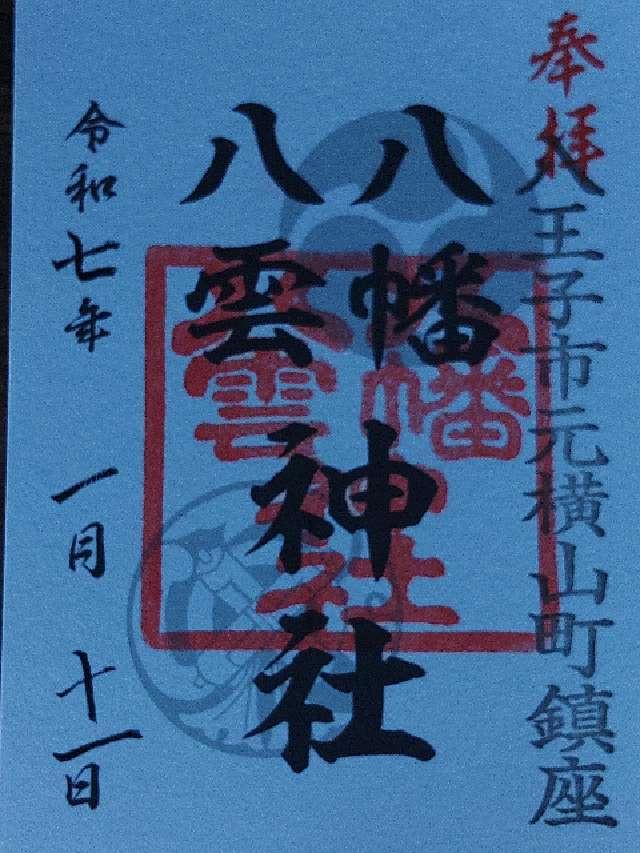 奉拝
八王子市元横山町鎮座
八幡
八雲
神社
八幡
八雲
神社
令和七年 一月 十一日